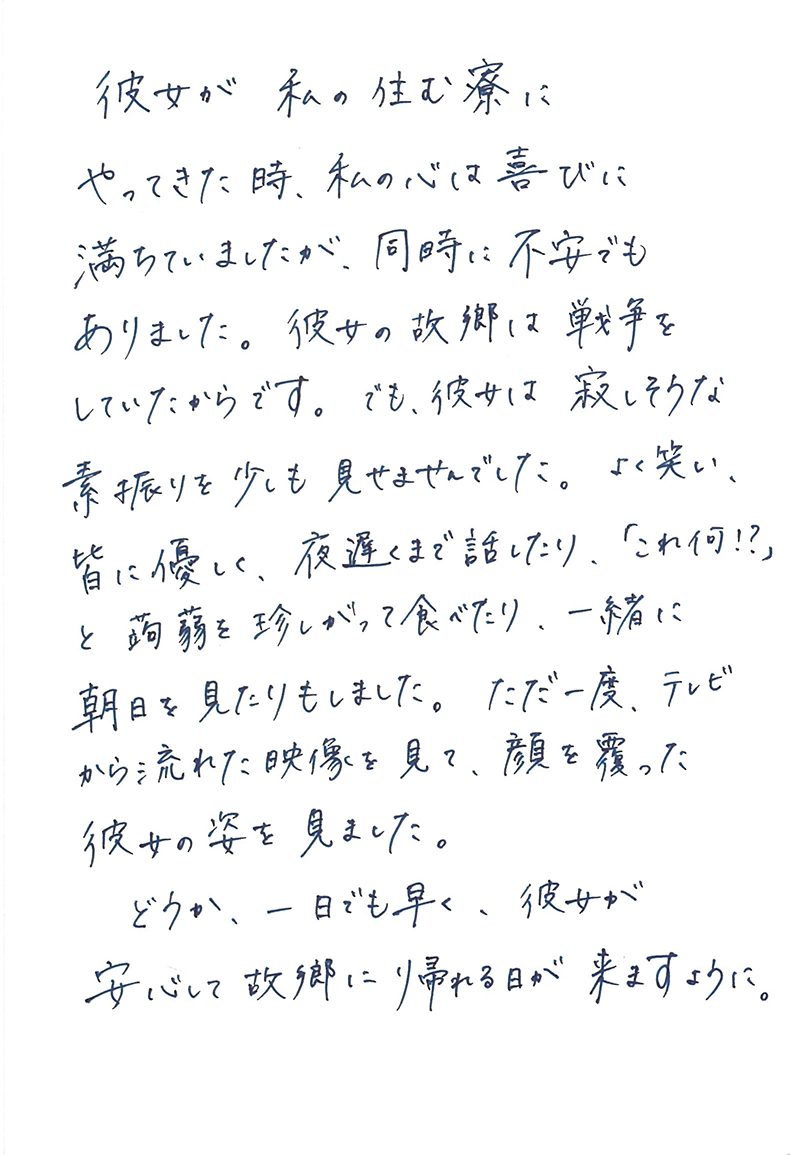 彼女が 私の住む寮に
やってきた時、私の心は喜びに
満ちていましたが、同時に不安でも
ありました。彼女の故郷は戦争を
していたからです。でも、彼女は 寂しそうな
素振りを少しも見せませんでした。よく笑い、
皆に優しく、夜遅くまで話したり、「これ何!?」
と蒟蒻を珍しがって食べたり、一緒に
朝日を見たりもしました。ただ一度、テレビ
から流れた映像を見て、顔を覆った
彼女の姿を見ました。
どうか、一日でも早く、彼女が
安心して故郷に帰れる日が来ますように。